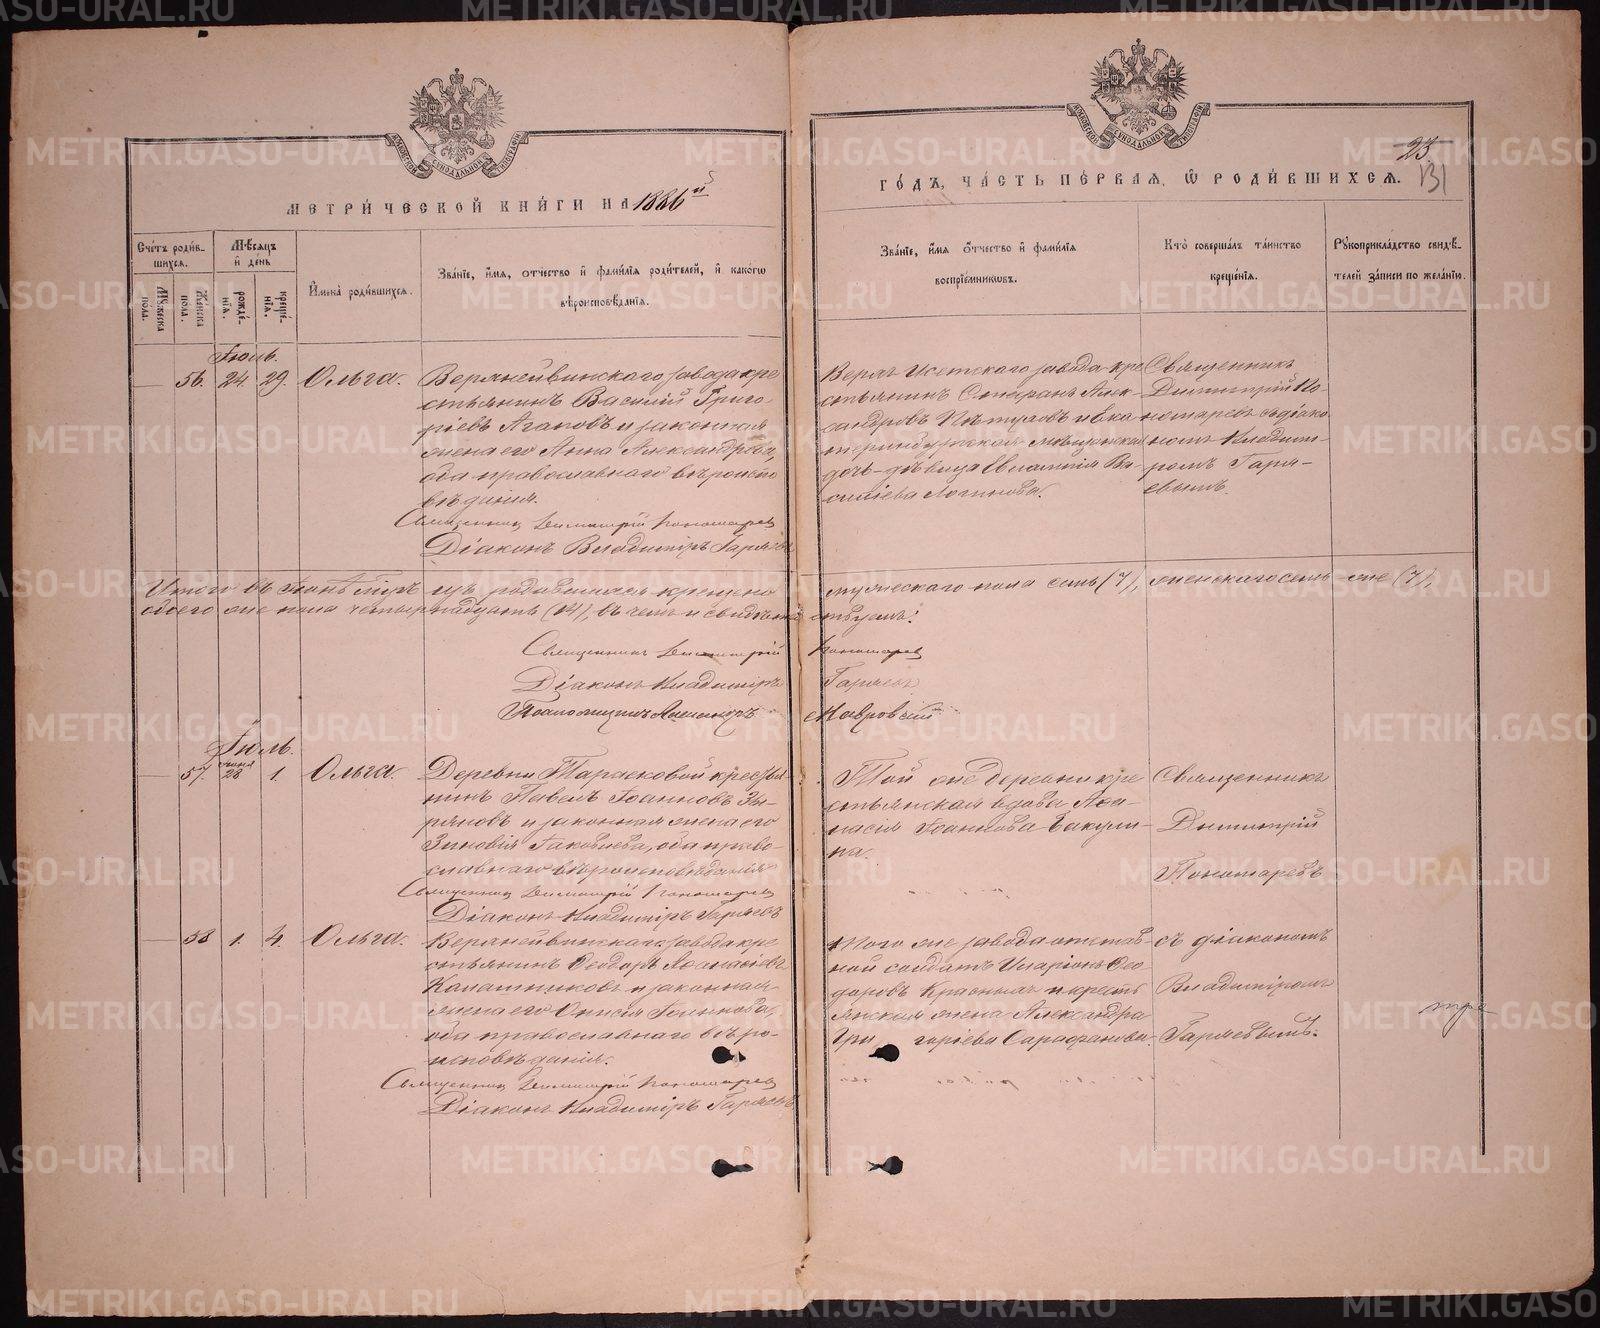 МЕТРИ́ЧЕСКОЙ КНИ́ГИ НА 1886й
ГО́ДЪ, ЧА́СТЬ ПЕ́РВАЯ, Ѡ РОДИ́ВШИХСЯ.
23.
131
Сче́тъ роди́в-
шихся.
Му́жеска
по́ла.
Же́нска
по́ла.
Мѣ́сяцъ
и҆ день
рожде́-
нїя.
креще́-
нїя.
И҆мена̀ роди́вшихся.
Зва́нїе, и҆́мя, ѻ҆́тчество и҆ фами́лїя роди́телей, и҆ како́гѡ
вѣроисповѣ́данїя.
Зва́нїе, и҆́мя ѻ҆́тчество и҆ фами́лїя
воспрїе́мниковъ.
Кто̀ соверша́лъ та́инство
креще́нїя.
Рꙋкоприкла́дство свидѣ́-
телей за́писи по жела́нїю.
Іюнь.
56. 24. 29. Ольга.
Верхнейвинскаго завода кре
стьянинъ Василій Григо-
ріевъ Агаповъ и законная
жена его Анна Александрова,
оба православнаго вѣроиспо
вѣданія.
Священникъ Димитрій Пономарев
Діаконъ Владиміръ Гаряевъ
Верхъ Исетскаго завода кре
стьянинъ Стефанъ Алек-
сандровъ Пѣтуховъ и Ека
теринбургская мѣщанская
дочь-дѣвица Евлампія Ва-
силіева Логинова.
Священникъ
Димитрій По
номаревъ съ діако
номъ Владими-
ромъ Гаря-
евымъ.
Итого въ Іюнѣ мѣсяцѣ родившихся крещено мужескаго пола семь (7), женскаго семь-же (7),
обоего же пола четырнадцать (14), въ чемъ и свидѣтельствуемъ:
Священникъ Димитрій Пономарев
Діаконъ Владиміръ Гаряевъ
Псаломщикъ Александръ Мавровскій
Іюль.
57. Іюня 28 1. Ольга.
Деревни Тарасковой крестья-
нинъ Павелъ Іоанновъ Зы-
ряновъ и законная жена его
Зиновія Іаковлева, оба право-
славнаго вѣроисповѣданія
Священникъ Димитрій Пономарев
Діаконъ Владиміръ Гаряевъ
Той же деревни кре
стьянская вдова Афа-
насія Іоаннова Бакули-
на.
Священникъ
Димитрій
Пономаревъ
58 1. 4. Ольга.
Верхнейвинскаго завода кре
стьянинъ Ѳеодоръ Аѳанасіевъ
Калашниковъ и законная
жена его Онисія Іоаннова,
оба православнаго вѣро-
исповѣданія.
Священникъ Димитрій Пономарев
Діаконъ Владиміръ Гаряевъ
Того же завода отстав-
ной солдатъ Иларіонъ Ѳео
доровъ Красныхъ и кресть
янская жена Александра
Григоріева Сарафанова.
съ діакономъ
Владиміромъ
Гаряевымъ.
METRIKI.GASO-URAL.RU